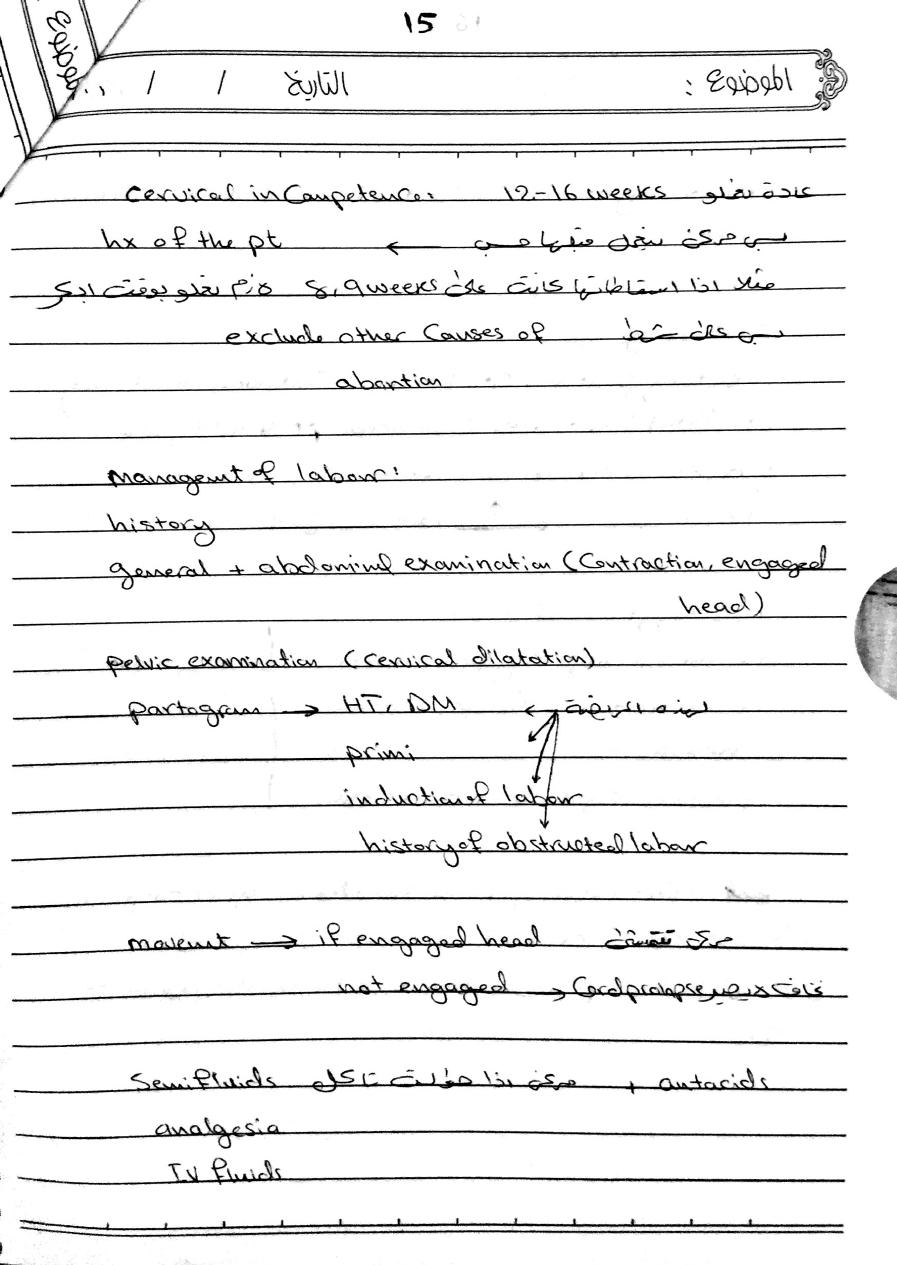 15
الموضوع : التاريخ / /
الموضوع
Cervical in Competence: 12-16 weeks عادة بغلو
بس ممكن ← hx of the pt
مثلا اذا اسقاطاتها كانت على 8,9 weeks لازم بغلو بوقت ابكر
بس على شرط exclude other Causes of
abortion
managemt of labour:
history
general + abdominal examination (Contraction, engaged
head)
pelvic examination (cervical dilatation)
partogram → HT, DM ← لهذه المريضة
primi
induction of labour
history of obstructed labour
movemt → if engaged head ممكن تتمشى
not engaged → Cord prolapse يصير
Semifluids ممكن اذا تاكل + antacids
analgesia
IV fluids